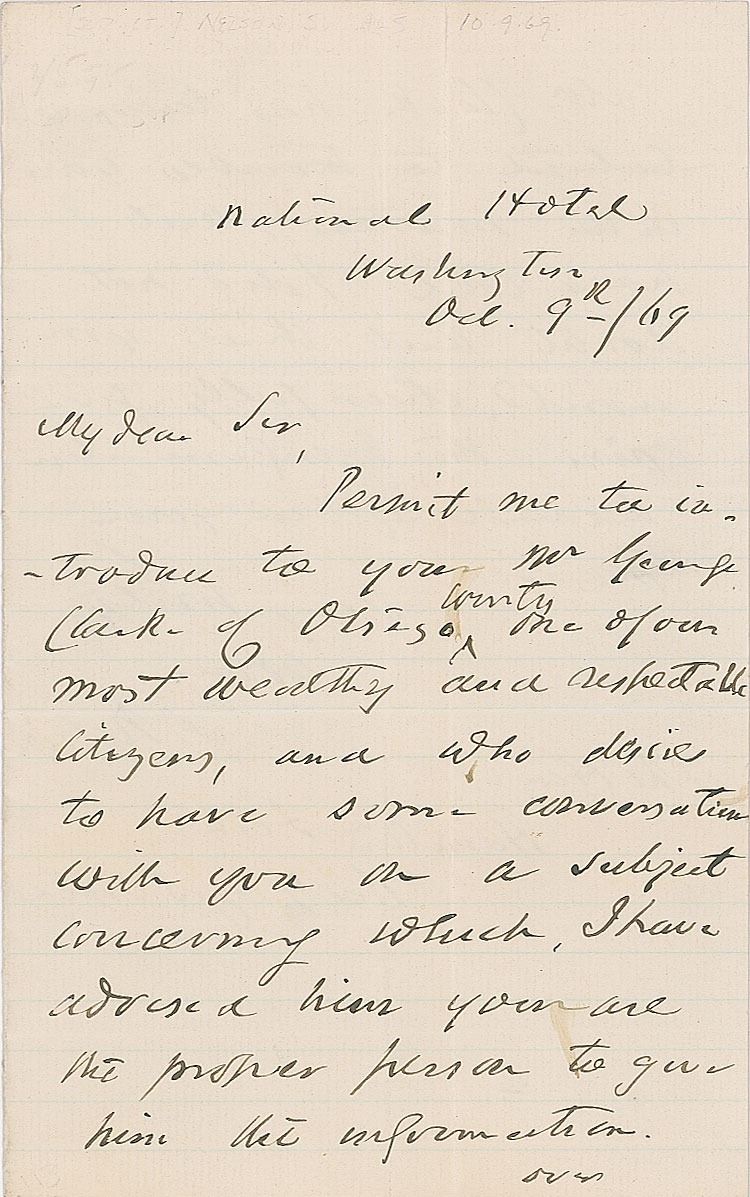 Nelson, S. ALS 10.9.69
National Hotel
Washington
Oct. 9th/69
My dear Sir,
Permit me to in-
-troduce to you Mr George
Clarke of Otsego county, one of our
most wealthy and respectable
citizens, and who desires
to have some conversation
with you on a subject
concerning which, I have
advised him you are
the proper person to give
him the information.
over